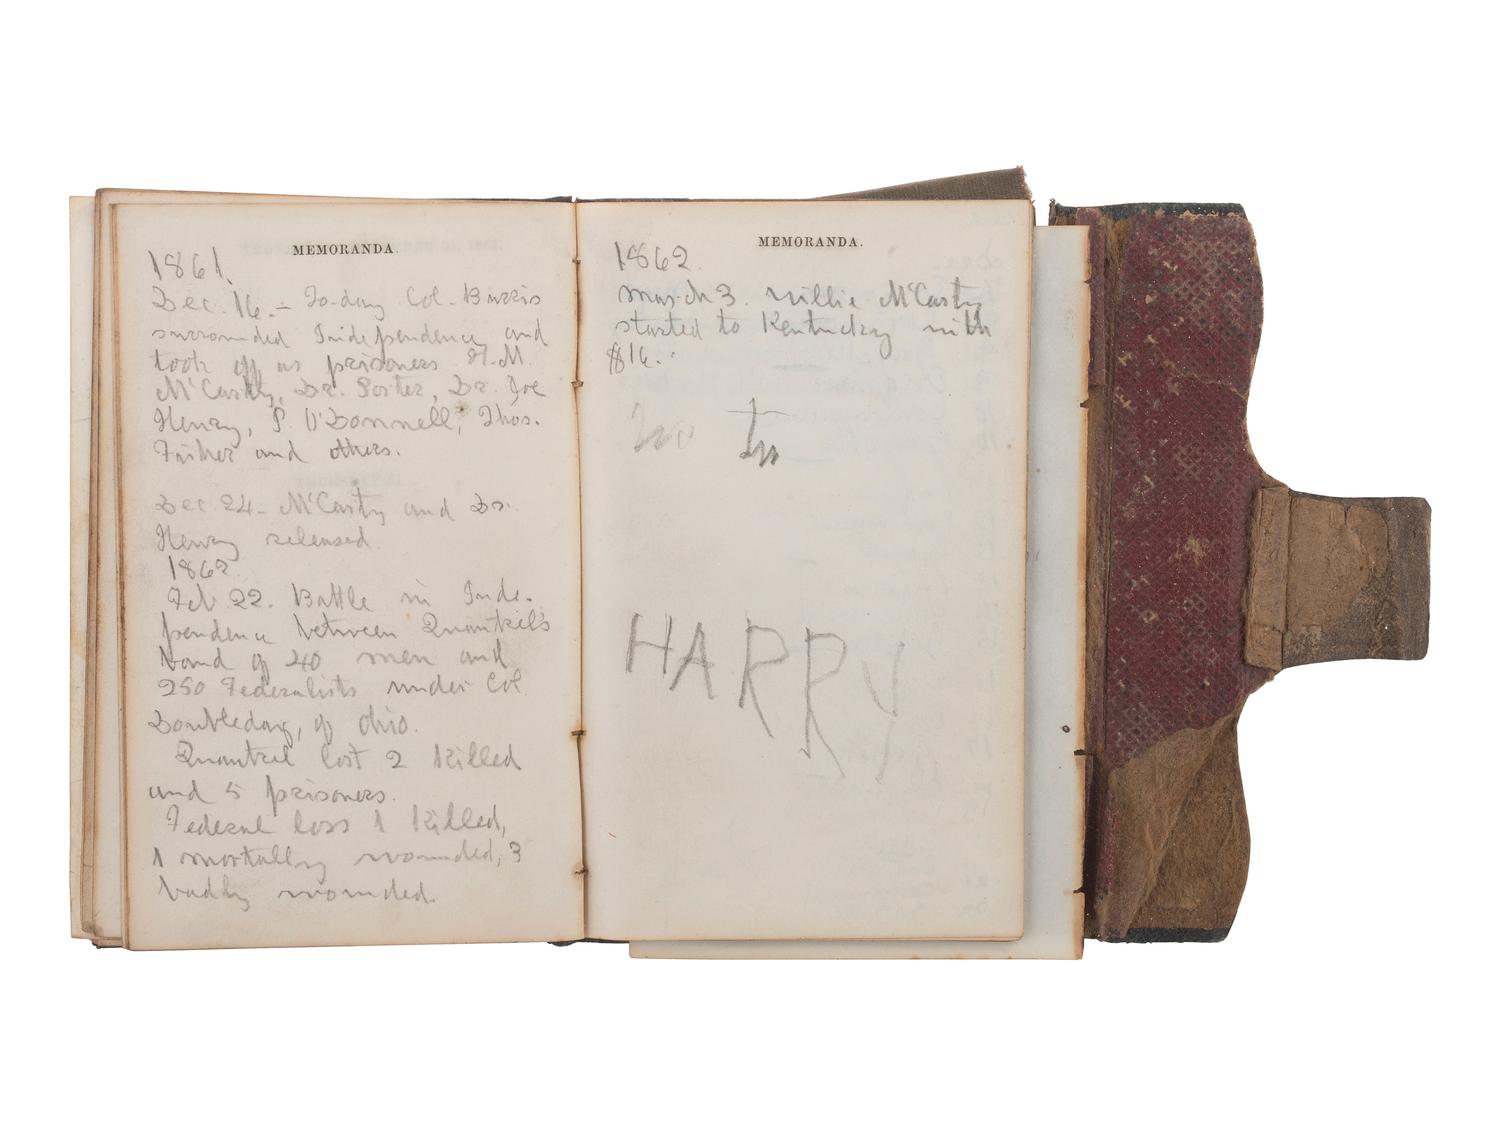 MEMORANDA.
1861.
Dec. 16. - To-day Col. Burris
surrounded Independence and
took off as prisoners H. M.
McCarty, Dr. Porter, Dr. Joe
Henry, P. O'Donnell, Thos.
Fisher and others.
Dec 24 - McCarty and Dr.
Henry released.
1862.
Feb 22. Battle in Inde-
pendence between Quantrel's
band of 40 men and
250 Federalists under Col
Doubleday, of Ohio.
Quantrel lost 2 killed
and 5 prisoners.
Federal loss 1 killed,
1 mortally wounded, 3
badly wounded.
MEMORANDA.
1862.
March 3. Willie McCarty
started to Kentucky with
$16.
to
HARRY